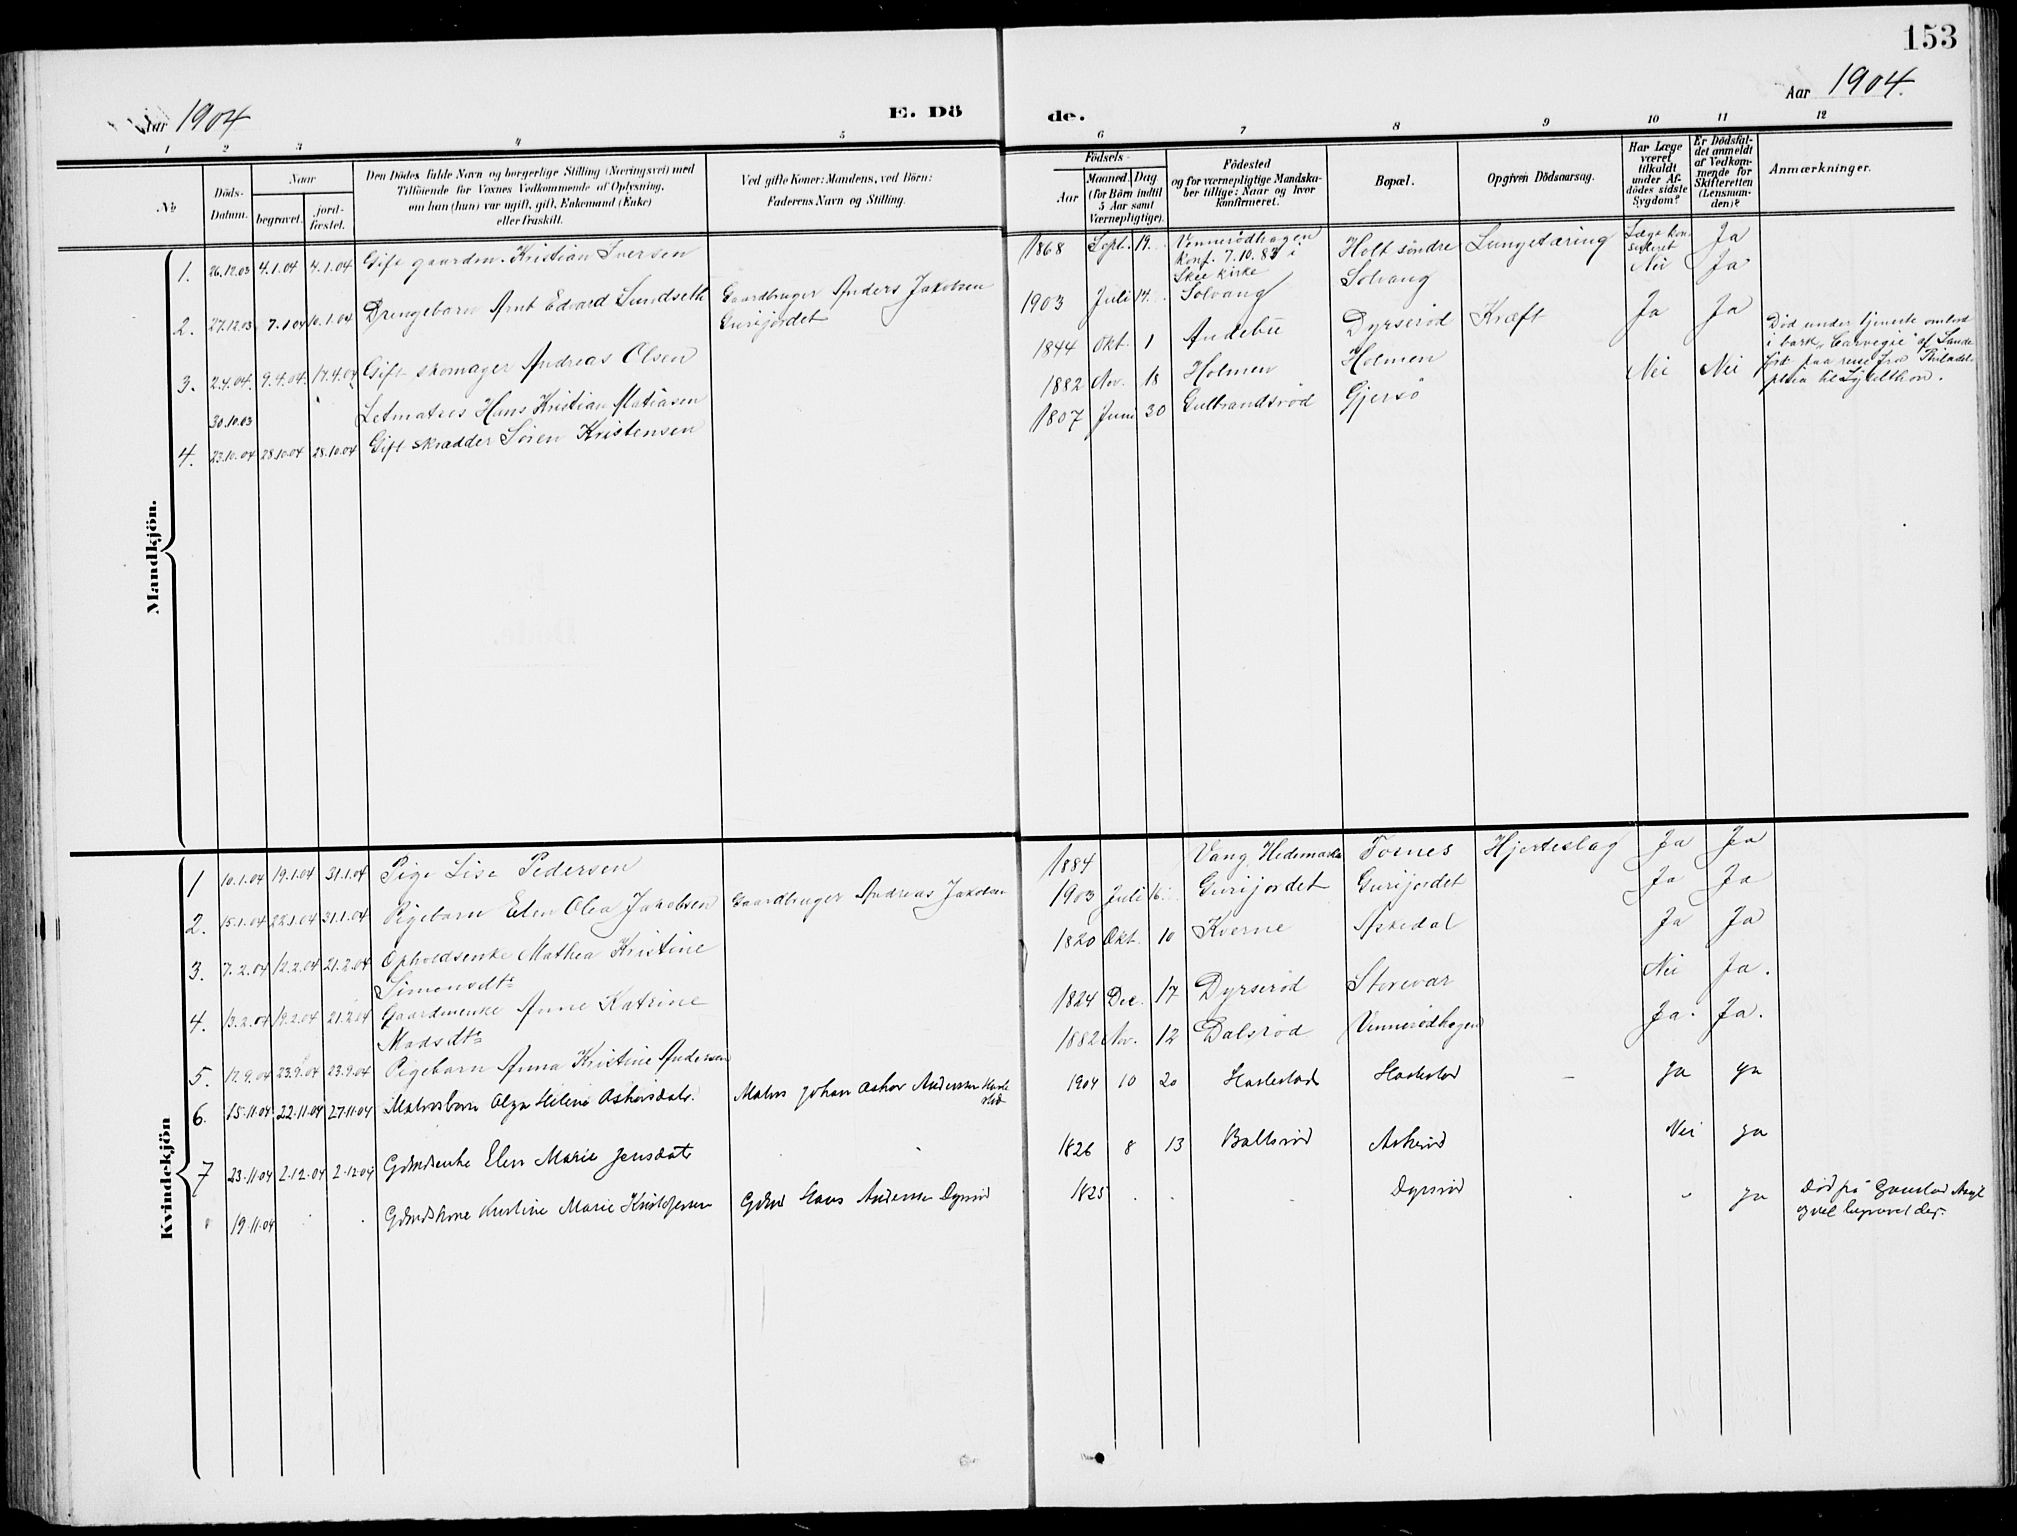 153
Aar 1904
E. Dö de.
Aar 1904.
1 2 3 4 5 6 7 8 9 10 11 12
№
Döds-
Datum.
Naar
begravet.
jord-
fæstet.
Den Dödes fulde Navn og borgerlige Stilling (Næringsvei) med
Tilföiende for Voxnes Vedkommende af Oplysning,
om han (hun) var ugift, gift, Enkemand (Enke)
eller fraskilt.
Ved gifte Koner: Mandens, ved Börn:
Faderens Navn og Stilling.
Födsels-
Aar
Maaned. Dag
(for Börn indtil
5 Aar samt
Værnepligtige).
Födested
og for værnepligtige Mandska-
ber tillige: Naar og hvor
konfirmeret.
Bopæl.
Opgiven Dödsaarsag.
Har Læge
været
tilkaldt
under Af-
dödes sidste
Sygdom?
Er Dödsfal-
det anmeldt
af Vedkom-
mende for
Skifteretten
(Lensman-
den)?
Anmærkninger.
Mandkjön.
1. 26.12.03 4.1.04 4.1.04 Gift gaardm. Kristian Iversen 1868 Sept. 19. Vennerødhagen Holt søndre Lungetæring Læge kon- Ja
Konf. 7.10.83 i
Skee kirke
2. 27.12.03 7.1.04 10.1.04 Drengebarn Arnt Edvard Sundseth Gaardbruger Anders Jakobsen 1903 Juli 14. Solvang Solvang Nei Ja
Gurijordet
3. 2.4.04. 9.4.04. 17.4.04 Gift skomager Andreas Olsen 1844 Okt. 1 Andebu Dyrserød Kræft Ja Ja
30.10.03 Letmatros Hans Kristian Matiasen 1882 Nov. 18 Holmen Holmen Nei Nei Død under tjeneste ombord
i bark "Carnegie" af Sande
fjord paa reise fra Philadel-
phia til Lyttelthon.
4. 23.10.04 28.10.04 28.10.04 Gift skrædder Søren Kristensen 1807 Juni 30 Gulbrandsrød Gjersø
Kvindekjön
1 10.1.04 19.1.04 31.1.04 Pige Lise Pedersen 1884 Vang, Hedemarken Fosnes Hjerteslag Ja Ja
2. 15.1.04 22.1.04 31.1.04 Pigebarn Elen Olea Jakobsen Gaardbruger Andreas Jakobsen 1903 Juli 16. Gurijordet Gurijordet Ja Ja
3. 7.2.04 12.2.04 21.2.04 Opholdsenke Mathea Kristine 1820 Okt. 10 Kverne Askedal Ja Ja
Simensdtr
4. 13.2.04 19.2.04 21.2.04 Gaardmenke Anne Katrine 1824 Dec. 17 Dyrserød Storevar Nei Ja.
Madsdtr
5. 17.9.04 23.9.04 23.9.04 Pigebarn Anna Kristine Andersen 1882 Nov. 12 Dalsrød Vennerødhagen Ja. Ja.
6. 15.11.04 22.11.04 27.11.04 Matrosbarn Olga Helene Oskarsdatr. Matros Johan Oskar Andersen 1904 10 20 Haslestad Haslestad - Ja Ja
7 23.11.04 2.12.04 2.12.04 Gdmdsenke Elen Marie Jensdatr 1826 8 13 Bollsrød Askerød Nei Ja
" 19.11.04 Gdmdskone Kirstine Marie Kristofersen Gdmd Hans Andersen Dyrsrød 1825 Dyrsrød " Ja Død på Gaustad Asyl
og vel begravet der.